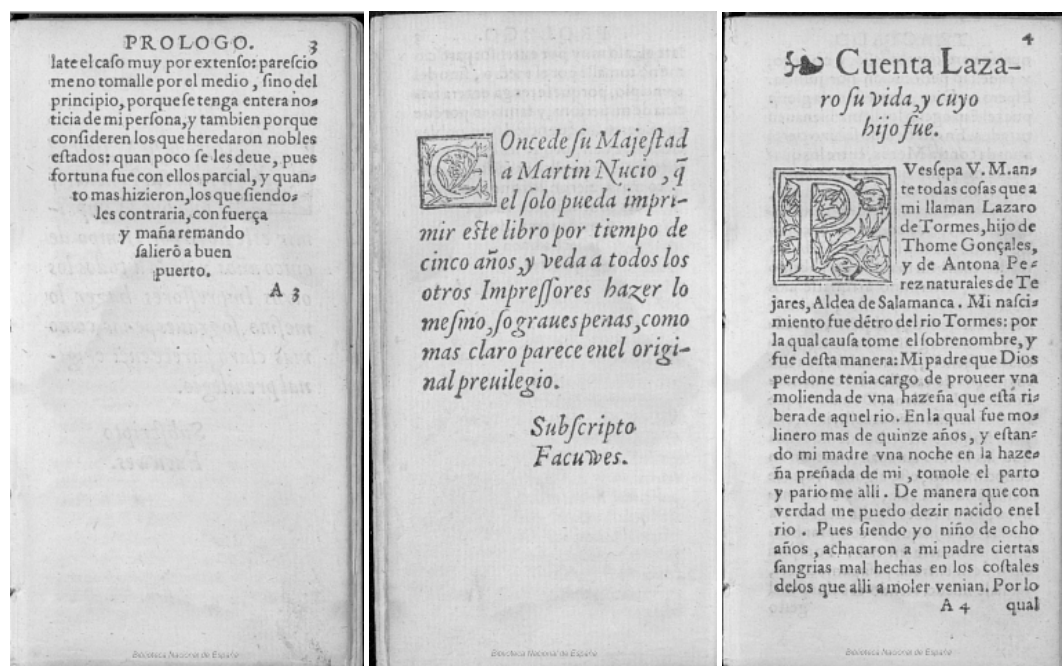 PROLOGO. 3
late el caſo muy por extenſo: pareſcio
me no tomalle por el medio, ſino del
principio, porque ſe tenga entera no⸗
ticia de mi perſona, y tambien porque
conſideren los que heredaron nobles
eſtados: quan poco ſe les deue, pues
fortuna fue con ellos parcial, y quan⸗
to mas hizieron, los que ſiendo⸗
les contraria, con fuerça
y maña remando
ſalierõ a buen
puerto.
A 3
Biblioteca Nacional de España
COncede ſu Majeſtad
a Martin Nucio, q̃
el ſolo pueda impri-
mir eſte libro por tiempo de
cinco años, y veda a todos los
otros Impreſſores hazer lo
meſmo, ſo graues penas, como
mas claro parece enel origi-
nal preuilegio.
Subſcripto
Facuwes.
Biblioteca Nacional de España
4
Cuenta Laza-
ro ſu vida, y cuyo
hijo fue.
PVes ſepa V. M. an⸗
te todas coſas que a
mi llaman Lazaro
de Tormes, hijo de
Thome Gonçales,
y de Antona Pe⸗
rez naturales de Te
jares, Aldea de Salamanca. Mi naſci⸗
miento fue dẽtro del rio Tormes: por
la qual cauſa tome el ſobrenombre, y
fue deſta manera: Mi padre que Dios
perdone tenia cargo de proueer vna
molienda de vna hazeña que eſtá ri⸗
bera de aquel rio. En la qual fue mo⸗
linero mas de quinze años, y eſtan⸗
do mi madre vna noche en la haze⸗
ña preñada de mi, tomole el parto
y pario me alli. De manera que con
verdad me puedo dezir nacido enel
rio. Pues ſiendo yo niño de ocho
años, achacaron a mi padre ciertas
ſangrias mal hechas en los coſtales
delos que alli a moler venian. Por lo
A 4 qual
Biblioteca Nacional de España